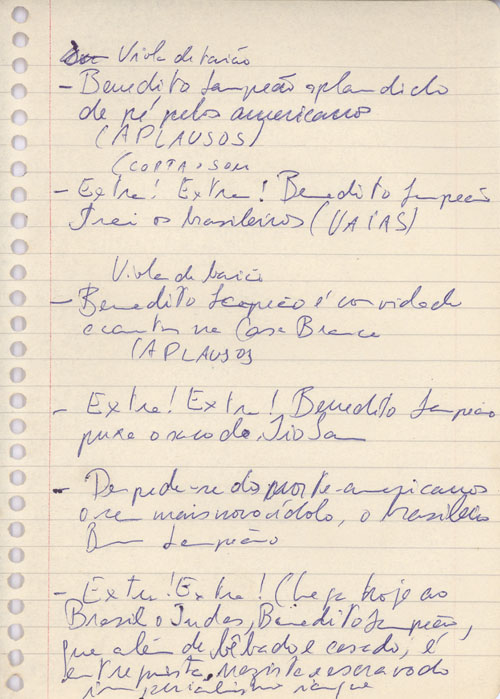 Viola de baião
- Benedito Lampeão aplaudido
de pé pelos americanos
(APLAUSOS)
(CORTA O SOM
- Extra! Extra! Benedito Lampeão
trai os brasileiros (VAIAS)
Viola de baião
- Benedito Lampeão é convidado
a cantar na Casa Branca
(APLAUSOS
- Extra! Extra! Benedito Lampeão
puxa o saco do Tio Sam
- Despede-se do norte-americanos
o seu mais novo ídolo, o brasileiro
Ben Lampeão
- Extra! Extra! Chega hoje ao
Brasil o Judas, Benedito Lampeão,
que além de bêbado e casado, é
entreguista, e escravo do
imperialismo ianque